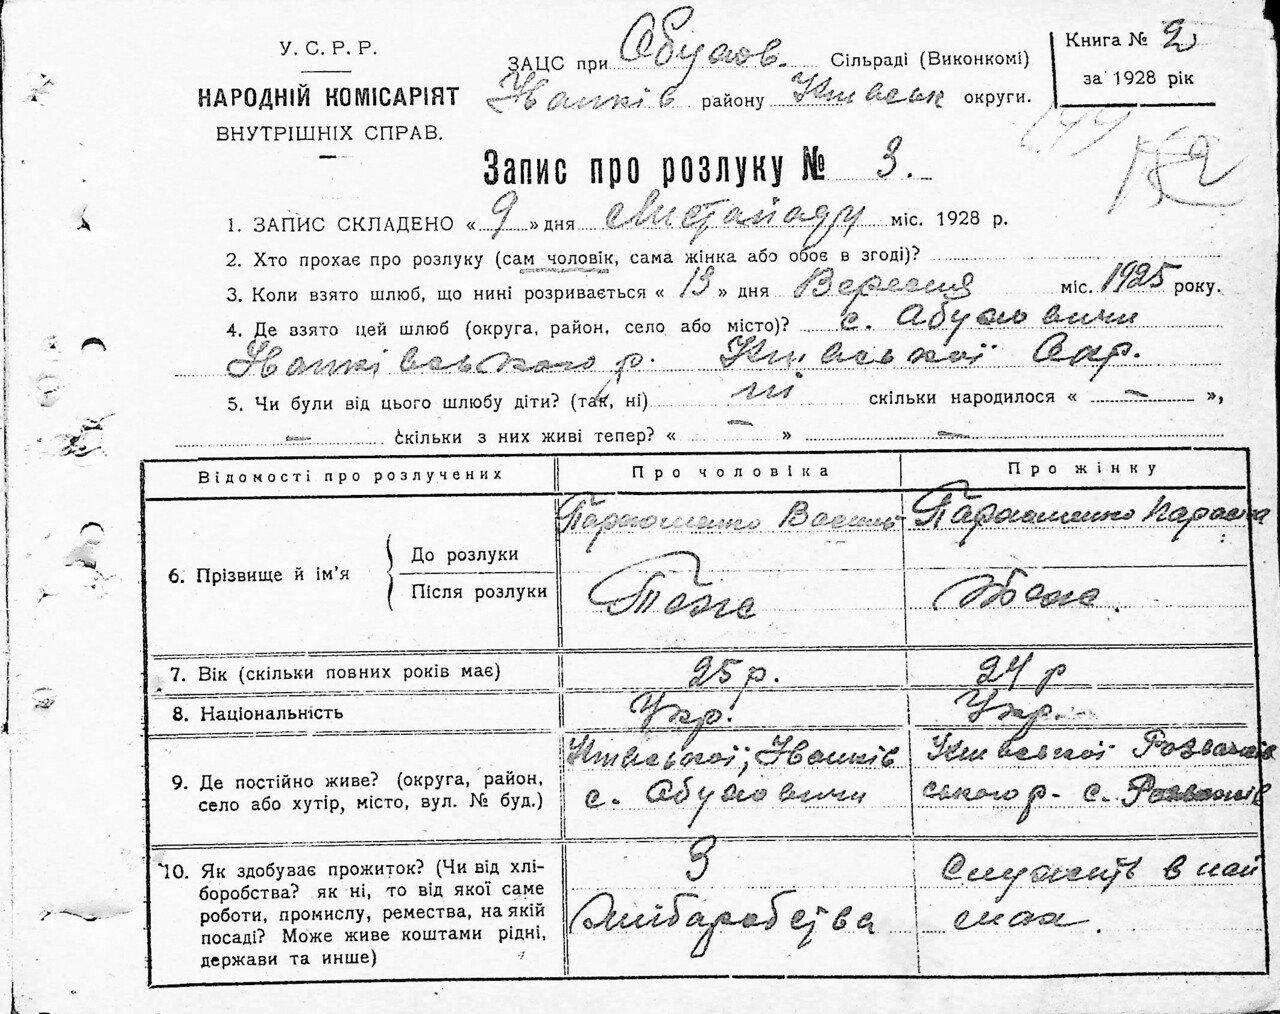 У. С. Р. Р.
НАРОДНІЙ КОМІСАРІЯТ
ВНУТРІШНІХ СПРАВ.
ЗАЦС при Обухов. Сільраді (Виконкомі)
Іванків району Київськ округи.
Книга № 2
за 1928 рік
Запис про розлуку № 3.
1. ЗАПИС СКЛАДЕНО « 9 » дня Листопаду міс. 1928 р.
2. Хто прохає про розлуку (сам чоловік, сама жінка або обоє в згоді)?
3. Коли взято шлюб, що нині розривається « 13 » дня Вересня міс. 1925 року.
4. Де взято цей шлюб (округа, район, село або місто)? с. Обуховичи
Іванківського р. Київської Окр.
5. Чи були від цього шлюбу діти? (так, ні) ні скільки народилося « — »,
— скільки з них живі тепер? « — » —
Відомості про розлучених Про чоловіка Про жінку
6. Прізвище й ім'я
До розлуки Пархоменко Василь Пархоменко Параска
Після розлуки Теж Теж.
7. Вік (скільки повних років має) 25 р. 24 р
8. Національність Укр. Укр.
9. Де постійно живе? (округа, район,
село або хутір, місто, вул. № буд.)
Київської, Іванків
с. Обуховичи
Київської Розважів
ського р. с. Розважів
10. Як здобуває прожиток? (Чи від хлі-
боробства? як ні, то від якої саме
роботи, промислу, ремества, на якій
посаді? Може живе коштами рідні,
держави та инше)
З
хліборобства
Служить в най
мах.